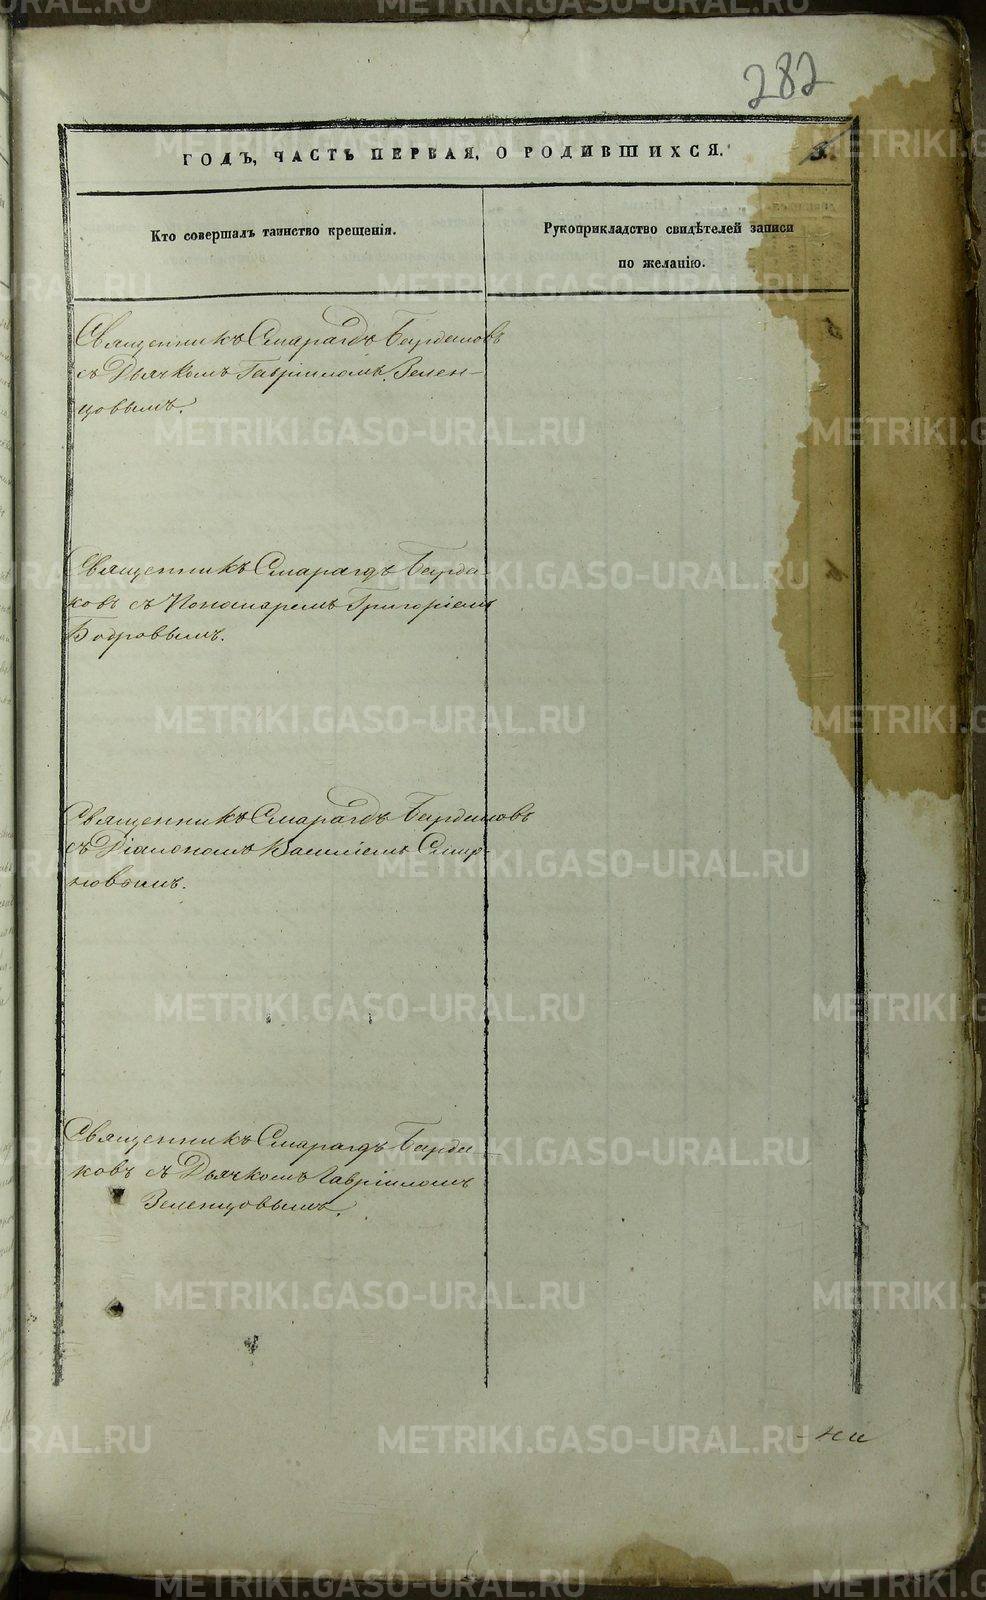 282
ГОДЪ, ЧАСТЬ ПЕРВАЯ, О РОДИВШИХСЯ.
Кто совершалъ таинство крещенія.
Рукоприкладство свидѣтелей записи
по желанію.
Священникъ Смарагдъ Бардаковъ
съ Дьячкомъ Гавріиломъ Зелен-
цовымъ.
Священникъ Смарагдъ Барда-
ковъ съ Пономаремъ Григоріемъ
Бобровымъ.
Священникъ Смарагдъ Бардаковъ
съ Діакономъ Василіемъ Смир-
новымъ.
Священникъ Смарагдъ Барда-
ковъ съ Дьячкомъ Гавріиломъ
Зеленцовымъ.
METRIKI.GASO-URAL.RU